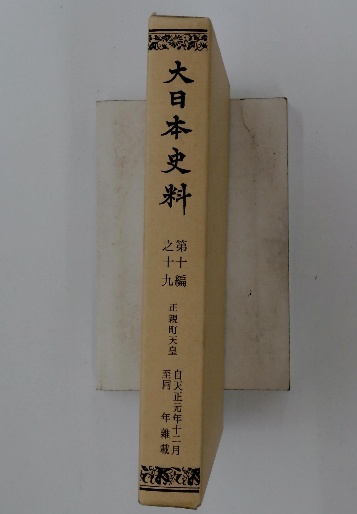 大日本史料
第十編
之十九
正親町天皇
自天正元年十二月
至同 年雜載